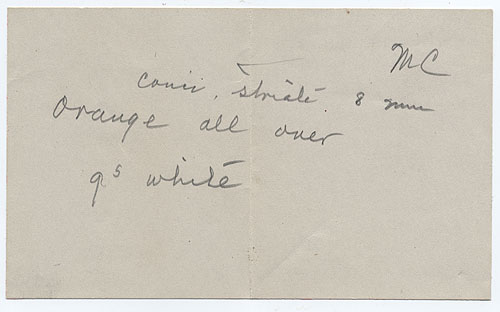 MC
conic, striate 8 mm
Orange all over
gs white